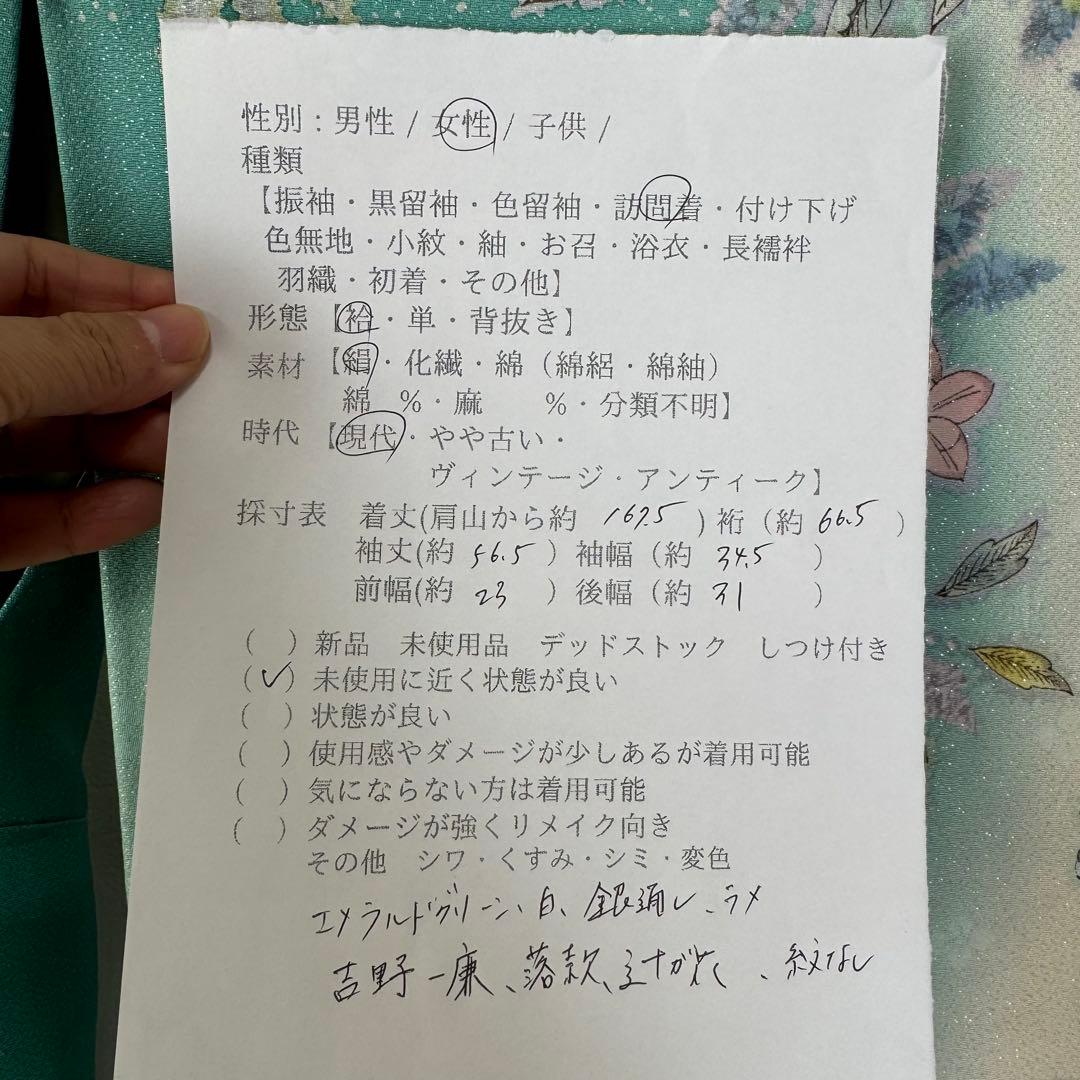 性別：男性 / 女性 / 子供 /
種類
【振袖・黒留袖・色留袖・訪問着・付け下げ
色無地・小紋・紬・お召・浴衣・長襦袢
羽織・初着・その他】
形態 【袷・単・背抜き】
素材 【絹・化繊・綿（綿絽・綿紬）
綿　％・麻　　％・分類不明】
時代 【現代・やや古い・
ヴィンテージ・アンティーク】
採寸表　着丈(肩山から約 167.5 ) 裄（約 66.5 ）
袖丈(約 56.5 ）袖幅（約 34.5 ）
前幅(約 23 ）後幅（約 31 ）
（　）新品　未使用品　デッドストック　しつけ付き
（✓）未使用に近く状態が良い
（　）状態が良い
（　）使用感やダメージが少しあるが着用可能
（　）気にならない方は着用可能
（　）ダメージが強くリメイク向き
その他　シワ・くすみ・シミ・変色
エメラルドグリーン、白、銀通し、ラメ
吉野一廉、落款、、紋なし